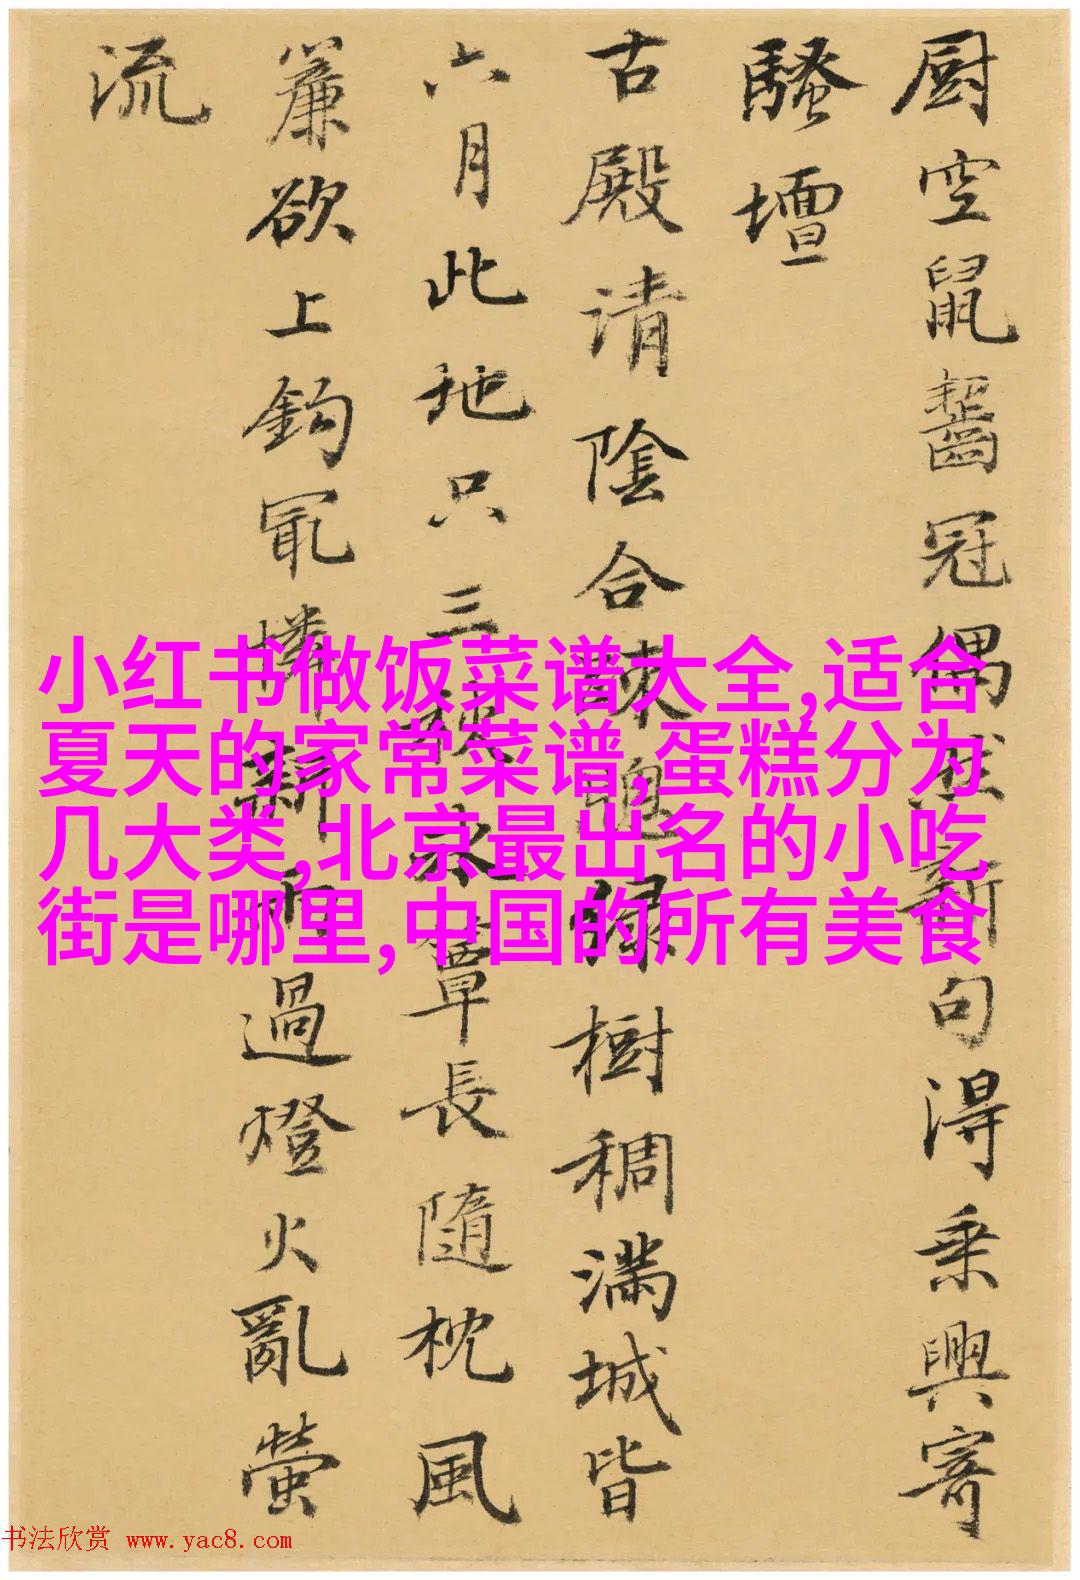 厨空鼠齧冠偶然新句得乘興寄
騷壇
古殿清陰合疎牕緑樹稠滿城皆
六月此地只三秋水簟長隨枕風
簾欲上鈎冣憐新雨過燈火亂螢
流
小红书做饭菜谱大全,适合
夏天的家常菜谱,蛋糕分为
几大类,北京最出名的小吃
街是哪里,中国的所有美食
书法欣赏 www.yac8.com